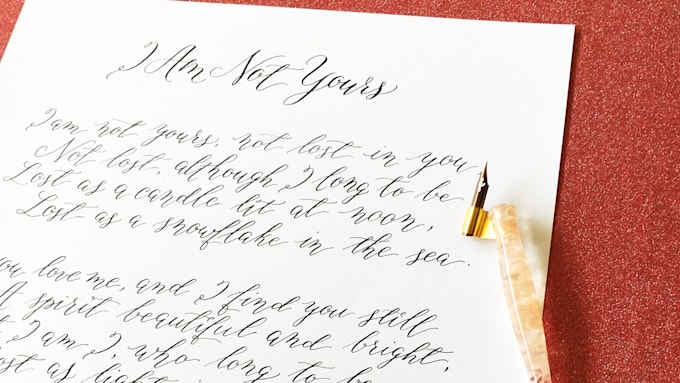 I Am Not Yours
I am not yours, not lost in you,
Not lost, although I long to be
Lost as a candle lit at noon,
Lost as a snowflake in the sea.
You love me, and I find you still
A spirit beautiful and bright,
I am I, who long to be
as light